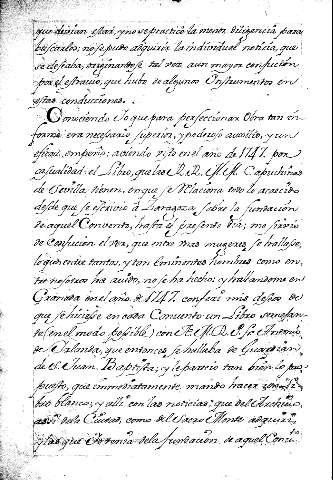 que devian estar, y no se practicó la menor diligencia para
buscarlos; no se pudo adquirir la individual noticia, que
se deseaba, originandose tal vez aun mayor confusion
por el extravio, que hubo de algunos Instrumentos en
estas conducciones.
Conociendo Yo que para perfeccionar Obra tan in
forme era necesario superior, y poderoso auxilio, y un
eficaz empeño; aviendo visto en el año de 1747. por
casualidad el Libro, que las RR. MM. Capuchinas
de Sevilla tienen, en que se relaciona todo lo acaecido
desde que se escrivio a Zaragoza sobre la fundacion
de aquel Convento, hasta el presente dia; me sirvio
de confusion el ver, que entre unas mugeres se hallase,
lo que entre tantos, y tan eminentes hombres como en-
tre nosotros ha avido, no se ha hecho; y hallandome en
Granada en el año de 1747. conferi mis deseos de
que se hiciese en cada Convento un Libro semejan-
te (en el modo posible) con el M. R. P. Fr. Antonio
de que entonces se hallaba de Guardian
de S. Juan Baptista; y le parecio tan bien lo pro-
puesto, que immediatamente mando hacer un Li-
bro blanco; y alli con las noticias, que del Archivo
de la Ciudad, como del Sacro Monte adquiri
de la fundacion de aquel Conv.